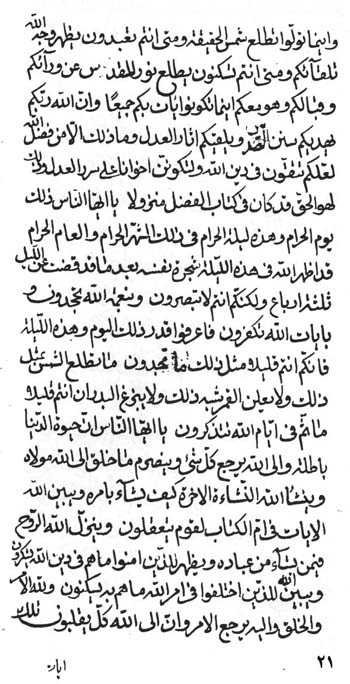 واينما تولوا تطلع شمس الحقيقة ومتى انتم تعبدون يظهر وجه الله
تلقآئكم ومتى انتم تسكنون يطلع نور المقدس عن ورآئكم
وقبالكم وهو معكم اينما تكونوا يات بكم جميعًا وان الله ربكم
لهديكم سنن ويلقيكم اثار العدل وما ذلك الا من فضل الله
لعلكم تتقون فى دين الله ولتكونن اخوانا على سرر العدل وذلك
لهو الحق قد كان فى كتاب الفضل منزولا يا ايها الناس ذلك
يوم الحرام وهذه ليلة الحرام فى ذلك الشهر الحرام والعام الحرام
قد اظهر الله فى هذه الليلة شجرة نفسه بعد ما قد قضت عن الليل
ثلثة ارباع ولكنكم انتم لا تبصرون وبنعمة الله تجحدون و
بايات الله تكفرون فاعرفوا قدر ذلك اليوم وهذه الليلة
فانكم انتم قليلا مثل ذلك ما تجدون ما تطلع الشمس بمثل
ذلك ولا يعلن القمر شبه ذلك ولا يبزغ البدر ان انتم قليلا
ما انتم فى ايام الله تتذكرون يا ايها الناس ان حيوة الدنيا
باطلة والى الله يرجع كل شئ وينصرم ما خلق الى الله مولاه
وينشأ الله النشاءة الاخرة كيف يشآء بامره ويبين الله
الايات فى ام الكتاب لقوم يعقلون وينزل الله الروح
فيمن يشآء من عباده ويظهر للذين امنوا ما هم فى دين الله يشكرون
ويبين الله للذين اختلفوا فى امر الله ما هم به يسكنون ولله الامر
والخلق واليه يرجع الامر وان الى الله كل يقلبون تلك
٢١
ايات